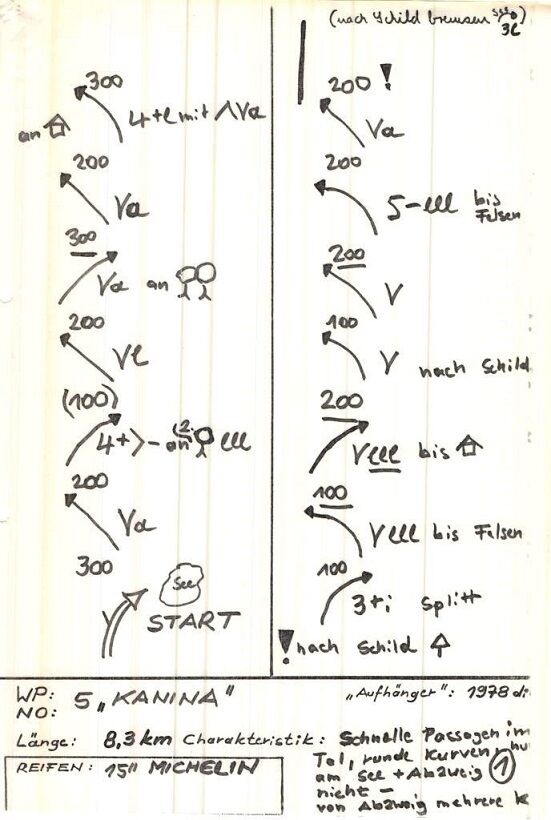 300
4+l mit Va
an
200
Va
300
Va an
200
Vl
(100)
4+ > - an (2. lll
200
Va
300
See
START
(nach Schild bremsen
200 !
Va
200
5-lll bis
Felsen
200
V
100
V nach Schild
200
Vlll bis
100
Vlll bis Felsen
100
3+i Splitt
! nach Schild
WP: 5 „KANINA"
NO:
„Aufhänger": 1978
Länge: 8,3 km Charakteristik: Schnelle Passagen im
Tal, runde Kurven,
am See + Abzweig 1
nicht –
von Abzweig mehrere K
REIFEN: 15" MICHELIN